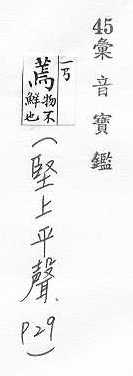 45彙音寶鑑
ㄧㄢ
蔫物不鮮也
(堅上平聲、P29)